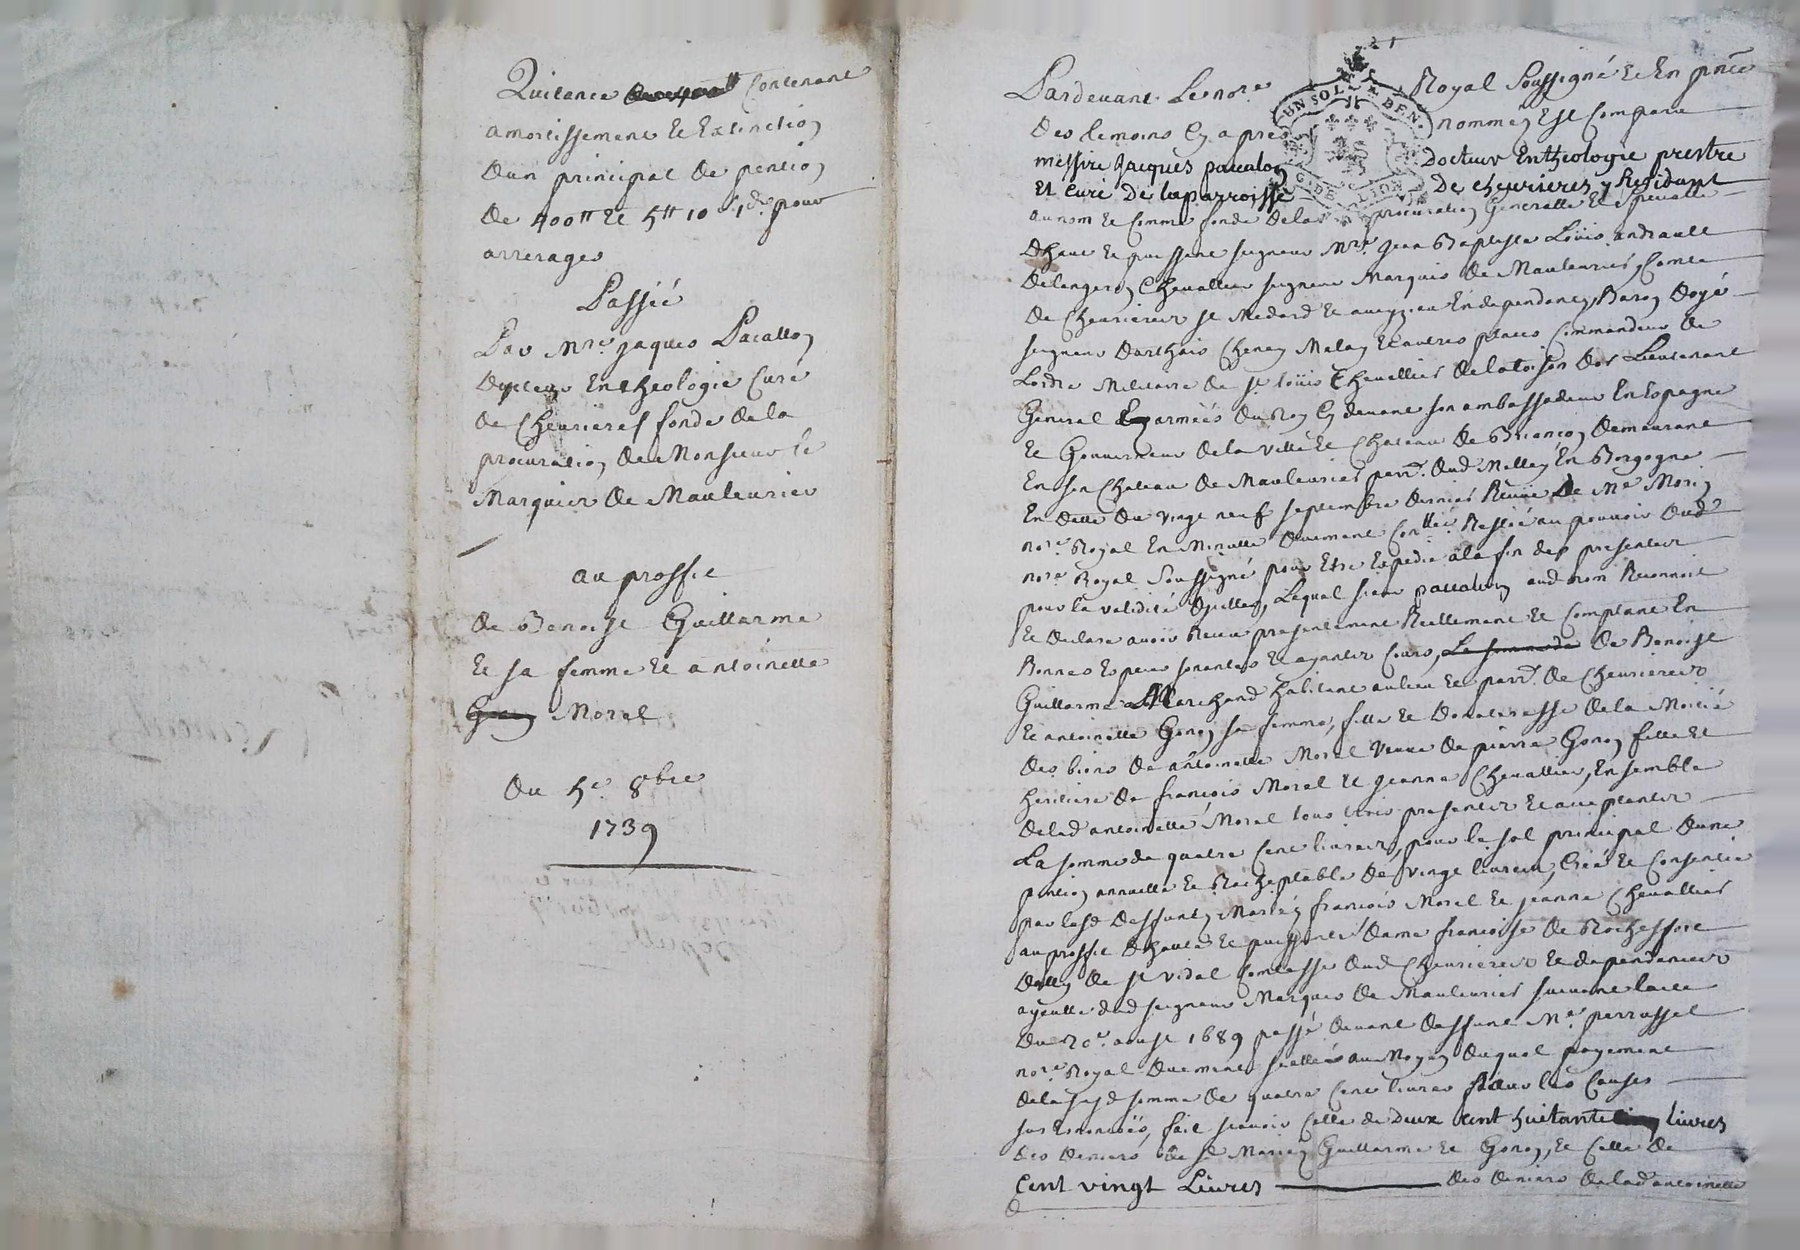 Quitance Contenant
amortissement Et Extinction
Dun principal De pention
De 400tt Et 5tt 10 s 1d pour
arrerages
Passée
Par Mre Jaques Pacallon
Docteur En theologie Curé
De Cheurieres fondé de la
procuration De Monsieur le
Marquis De Mauleurier
au proffit
De Benoist Guillarme
Et sa femme Et antoinette
Morel
Du 5e 8bre
1739
Pardevant Le nore Royal Soussigné Et En pnce
Des temoins Cy apres nommez Est Comparu
messire Jacques pacalon Docteur En theologie prestre
Et Curé De la parroisse De cheurieres y Residant
au nom Et Comme fondé De la procuration Generalle Et Specialle
Dhaut Et puissant seigneur Mre Jean Baptiste Loüis andrault
Delangeron Chevallier seigneur Marquis de Mauleurier, Comte
De Cheurieres st Medard Et aveyzieu Endependances, Baron Doyé
seigneur Darthais Cheney Malay Et autres places Commandeur de
Lordre Militaire de st Loüis Chevallier De la toison Dor Lieutenant
General armées Du Roy Cy devant son ambassadeur En Espagne
Et Gouverneur de la ville Et Chateau de Briançon Demeurant
En son Chateau de Mauleurier parr. Dud Mellay En Borgogne
En datte du vingt neuf septembre dernier Reçüe De Me Morin
nore Royal En Minutte Duement Conttée Restée au pouvoir Dud
nore Royal Soussigné pour Estre Expedié a la fin des presentes
pour la validité Dicelles, Lequel sieur pacalon aud nom Reconnoit
Et declare avoir Receu presentement Reellement Et Comptant En
Bonnes Especes sonantes Et ayantes Cours, La somme de De Benoist
Guillarme Marchand habitant au lieu Et parr. De Cheurieres
Et antoinette Gonon sa femme, fille Et Donataresse de la Moitié
Des biens De antoinette Morel veuve De pierre Gonon fille Et
heritiere De françois Morel Et Jeanne Chevallier, Ensemble
Delad antoinette Morel tous trois presents Et acceptants
La somme de quatre Cent livres, pour le sol principal Dune
pention annuelle Et Racheptable De vingt livres, Créé Et Consentie
par lesd Deffunts Mariés françois Morel Et Jeanne Chevallier
au proffit Dhaute Et puissante dame françoise de Rocheffort
Dally De st vidal Comtesse Dud Cheurieres Et dependances
ayeulle dud seigneur Marquis de Mauleurier suivant lacte
Du 20e aoust 1689 passé devant Deffunt Me perrussel
nore Royal Duement scellé au Moyen Duquel payement
De la susd somme De quatre Cent livres pour les Causes
sus Enoncées, fait scavoir Celle de Deux Cent huitante Livres
Des deniers De sd Mariés Guillarme Et Gonon, Et Celle De
Cent vingt Livres des deniers Delad antoinette
UN SOL DEN.
G. DE LION